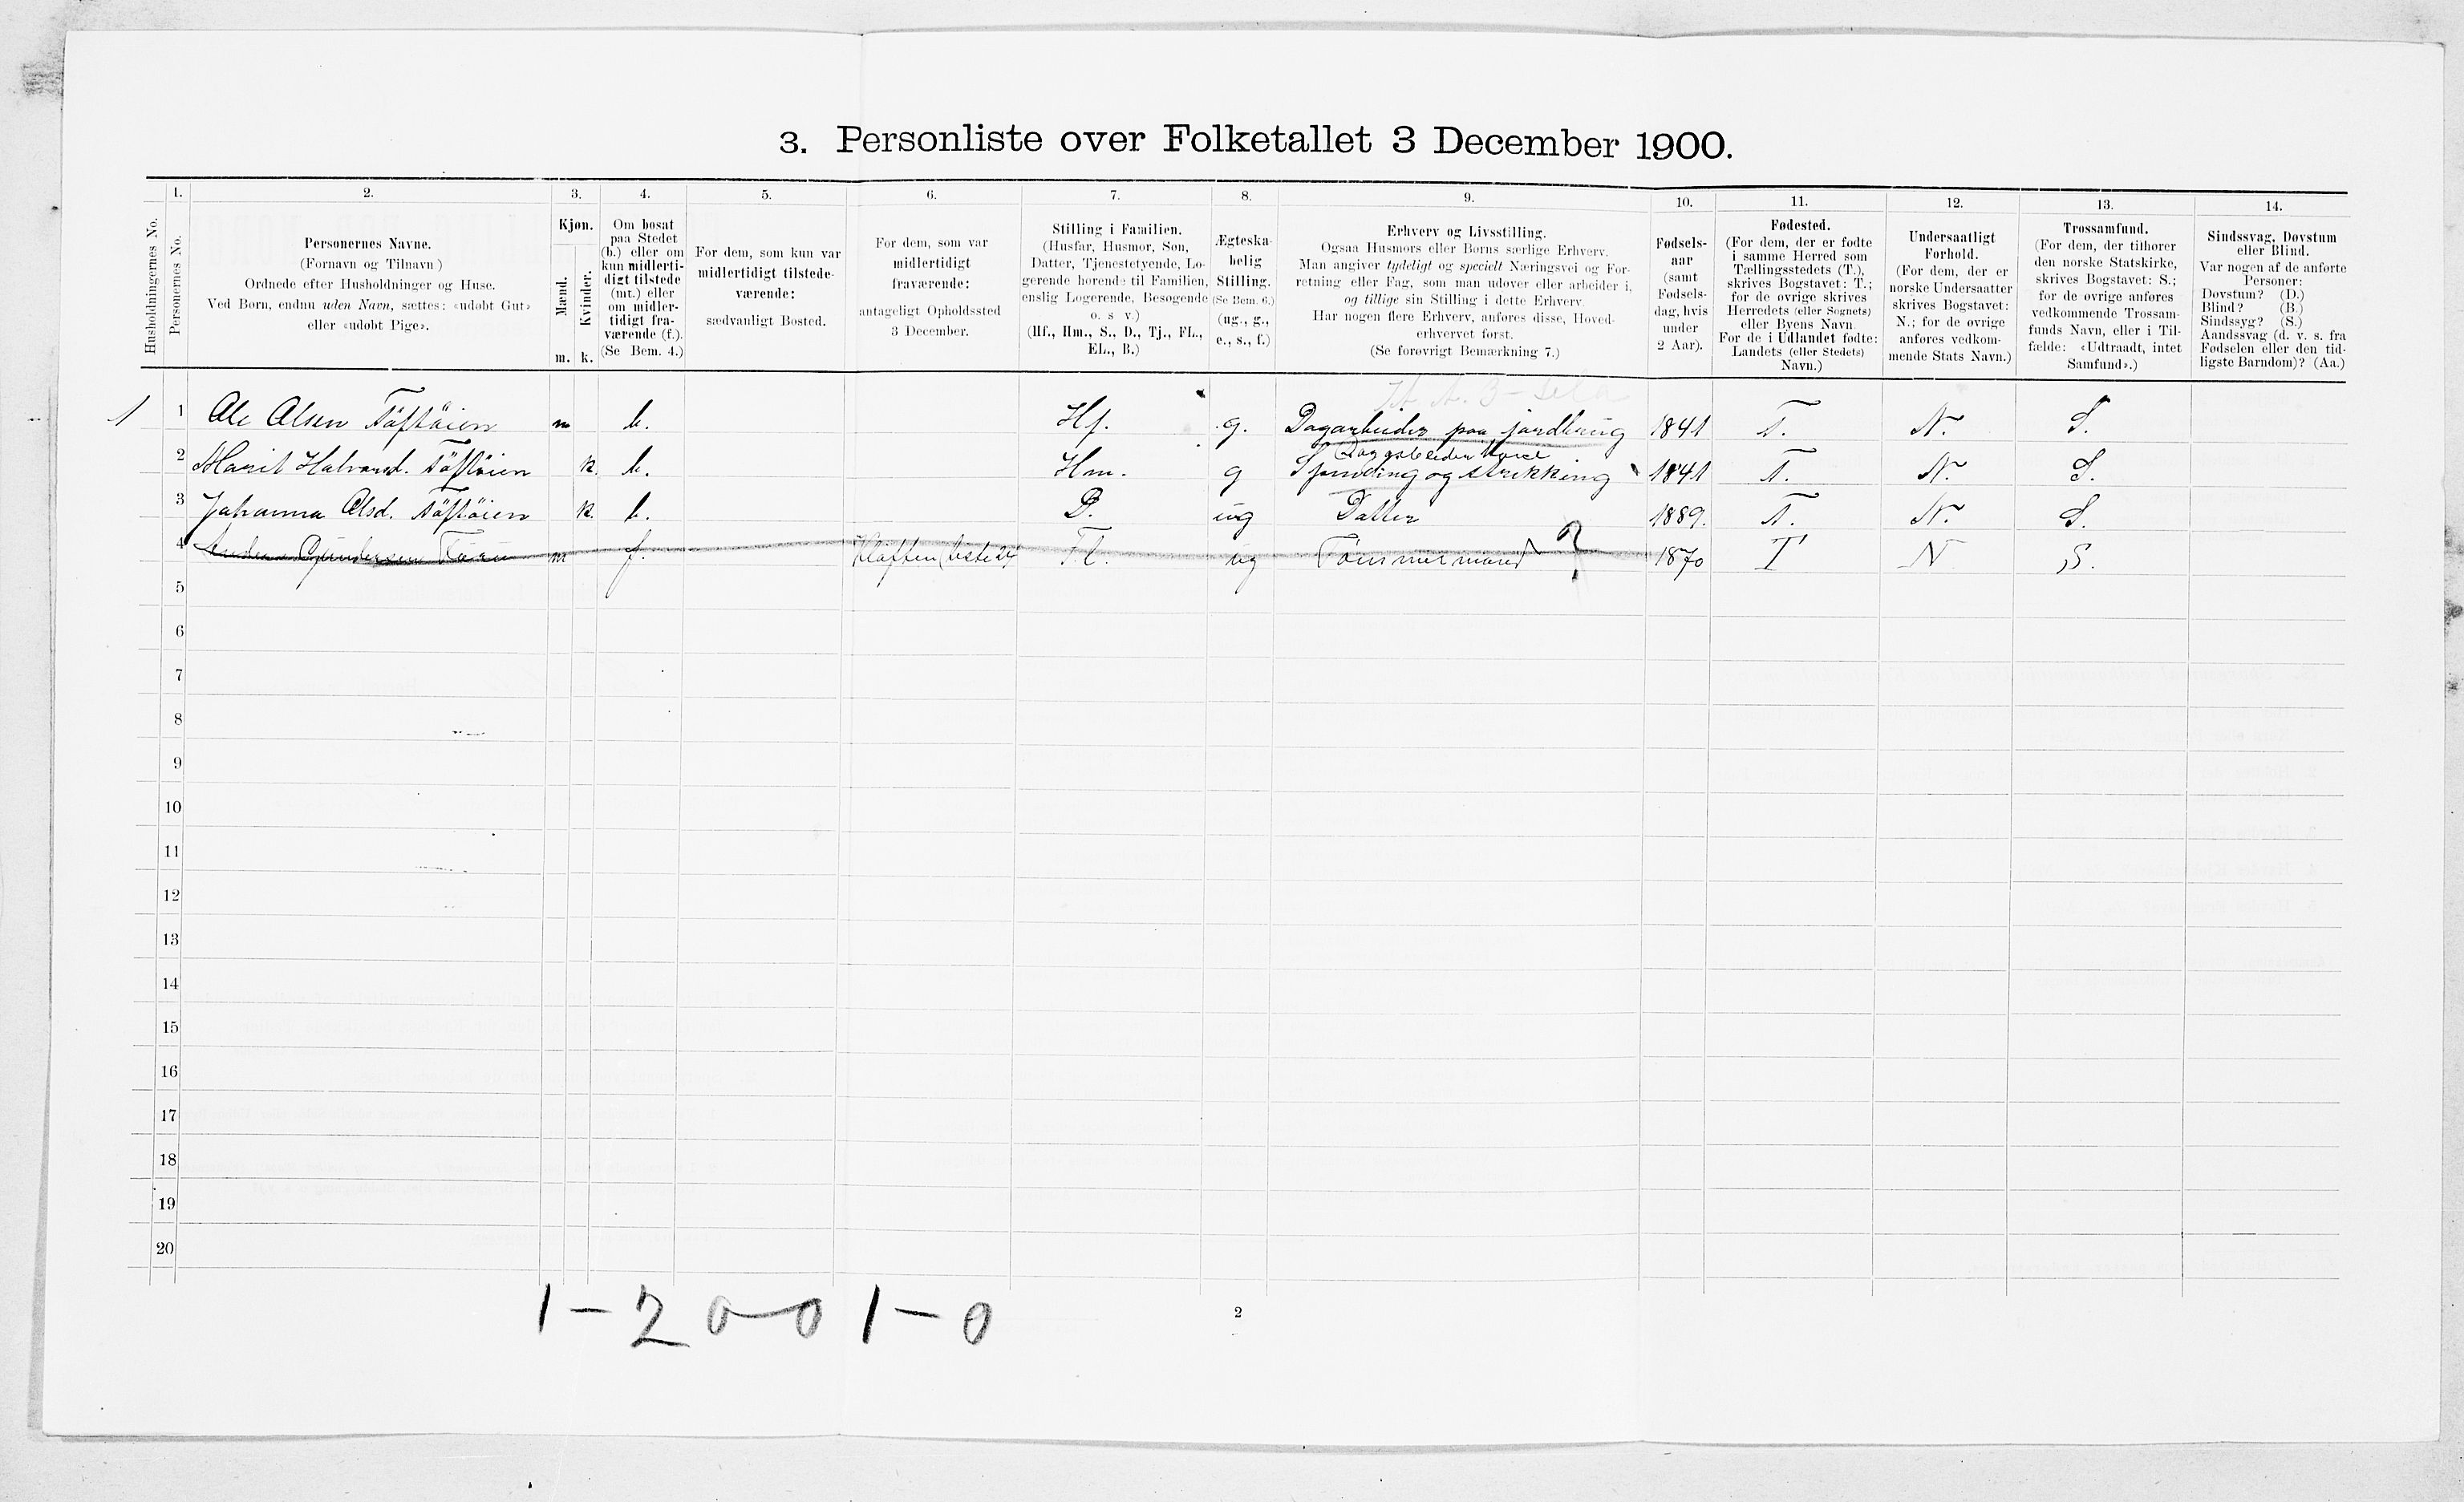 3. Personliste over Folketallet 3 December 1900.
Husholdningernes No.
1.
Personernes No.
2.
Personernes Navne.
(Fornavn og Tilnavn)
Ordnede efter Husholdninger og Huse.
Ved Børn, endnu uden Navn, sættes: «udøbt Gut»
eller «udøbt Pige».
3.
Kjøn.
Mænd.
Kvinder.
m. k.
4.
Om bosat
paa Stedet
(b.) eller om
kun midlerti-
digt tilstede
(mt.) eller
om midler-
tidigt fra-
værende (f.).
(Se Bem. 4.)
5.
For dem, som kun var
midlertidigt tilstede-
værende:
sædvanligt Bosted.
6.
For dem, som var
midlertidigt
fraværende:
antageligt Opholdssted
3 December.
7.
Stilling i Familien.
(Husfar, Husmor, Søn,
Datter, Tjenestetyende, Lo-
gerende hørende til Familien,
enslig Logerende, Besøgende
o. s v.)
(Hf., Hm., S., D., Tj., FL.,
EL., B.)
8.
Ægteska-
belig
Stilling.
(Se Bem. 6.)
(ug., g.,
e., s., f.)
9.
Erhverv og Livsstilling.
Ogsaa Husmors eller Børns særlige Erhverv.
Man angiver tydeligt og specielt Næringsvei og For-
retning eller Fag, som man udøver eller arbeider i,
og tillige sin Stilling i dette Erhverv.
Har nogen flere Erhverv, anføres disse, Hoved-
erhvervet først.
(Se forøvrigt Bemærkning 7.)
10.
Fødsels-
aar
(samt
Fødsels-
dag, hvis
under
2 Aar).
11.
Fødested.
(For dem, der er fødte
i samme Herred som
Tællingsstedets (T.),
skrives Bogstavet: T.;
for de øvrige skrives
Herredets (eller Sognets)
eller Byens Navn.
For de i Udlandet fødte:
Landets (eller Stedets)
Navn.)
12.
Undersaatligt
Forhold.
(For dem, der er
norske Undersaatter
skrives Bogstavet:
N.; for de øvrige
anføres vedkom-
mende Stats Navn.)
13.
Trossamfund.
(For dem, der tilhører
den norske Statskirke,
skrives Bogstavet: S.;
for de øvrige anføres
vedkommende Trossam-
funds Navn, eller i Til-
fælde: «Udtraadt, intet
Samfund».)
14.
Sindssvag, Døvstum
eller Blind.
Var nogen af de anførte
Personer:
Døvstum? (D.)
Blind? (B.)
Sindssyg? (S.)
Aandssvag (d. v. s. fra
Fødselen eller den tid-
ligste Barndom)? (Aa.)
1 1 Ole Olsen Töftöien m b. Hf. g. Dagarbeider paa jordbrug 1841 T. N. S.
2 Marit Halvorsd. Töftöien k. b. Hm. g Spinding og strikking 1841 T. N. S.
3 Johanna Olsd. Töftöien k. b. D. ug Datter 1889. T. N. S.
4 m f. Fl. ug Tömmermand ? 1870 T N S.
5
6
7
8
9
10
11
12
13
14
15
16
17
18
19
20
1 - 2 0 - 0 1 - 0
2